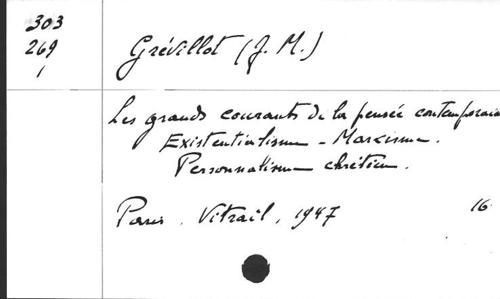 303
269
1
Grévillot (J. M.)
Les grands courants de la pensée contemporai
Existentialisme - Marxisme.
Personnalisme chrétien.
Paris. Vitrail, 1947 16